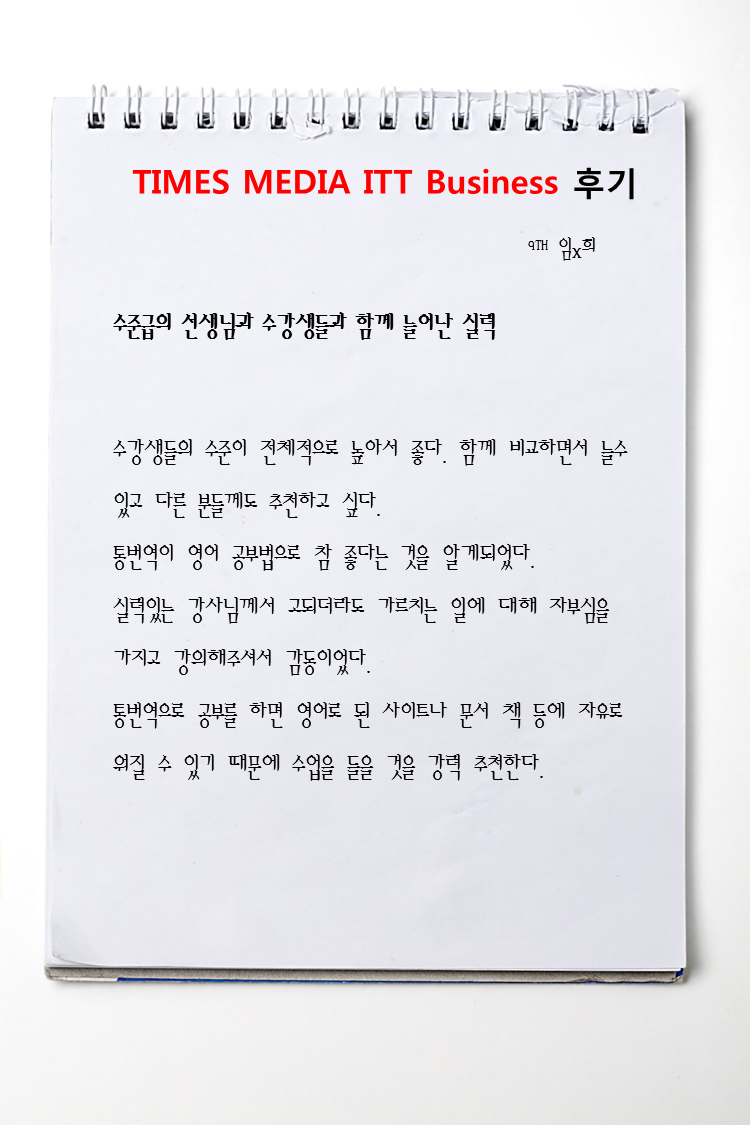 TIMES MEDIA ITT Business 후기
9TH 임x희
수준급의 선생님과 수강생들과 함께 늘어난 실력
수강생들의 수준이 전체적으로 높아서 좋다. 함께 비교하면서 늘수
있고 다른 분들께도 추천하고 싶다.
통번역이 영어 공부법으로 참 좋다는 것을 알게되었다.
실력있는 강사님께서 고되더라도 가르치는 일에 대해 자부심을
가지고 강의해주셔서 감동이었다.
통번역으로 공부를 하면 영어로 된 사이트나 문서 책 등에 자유로
워질 수 있기 때문에 수업을 들을 것을 강력 추천한다.